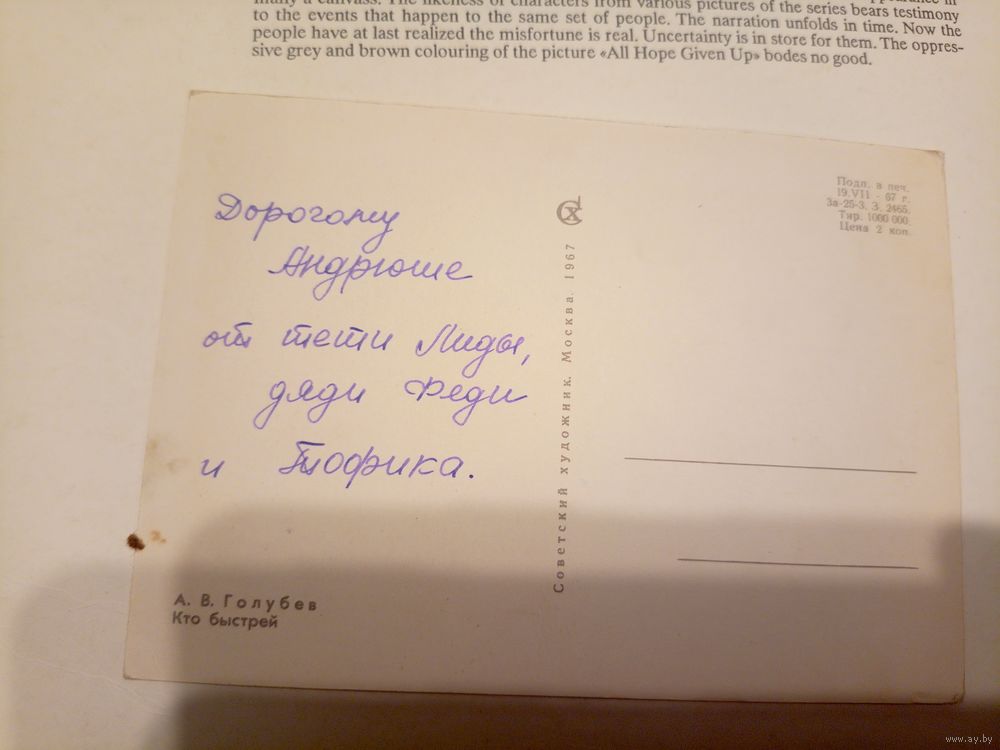 many a canvass. The likeness of characters from various pictures of the series bears testimony
to the events that happen to the same set of people. The narration unfolds in time. Now the
people have at last realized the misfortune is real. Uncertainty is in store for them. The oppres-
sive grey and brown colouring of the picture «All Hope Given Up» bodes no good.
Дорогому
Андрюше
от тети Лиды,
дяди Феди
и Тофика.
А. В. Голубев
Кто быстрей
Советский художник. Москва. 1967
Подп. в печ.
19.VII - 67 г.
За-25-3. З. 2465.
Тир. 1000 000.
Цена 2 коп.
www.ay.by